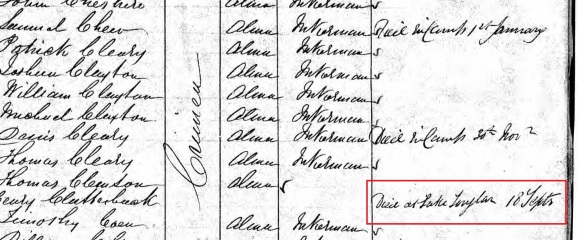 John Cheshire Alma Inkerman
Samuel Chew Alma Inkerman Died in Camp 1st January
Patrick Cleary Alma Inkerman
Joshua Clayton Alma Inkerman
William Clayton Alma Inkerman
Michael Clayton Alma Inkerman
Denis Cleary Alma Inkerman Died in Camp 30th Novr
Thomas Cleary Alma Inkerman
Thomas Clemson Alma
Henry Clutterbuck Died at Lake 18 Septr
Timothy Coen Alma Inkerman
Crimea